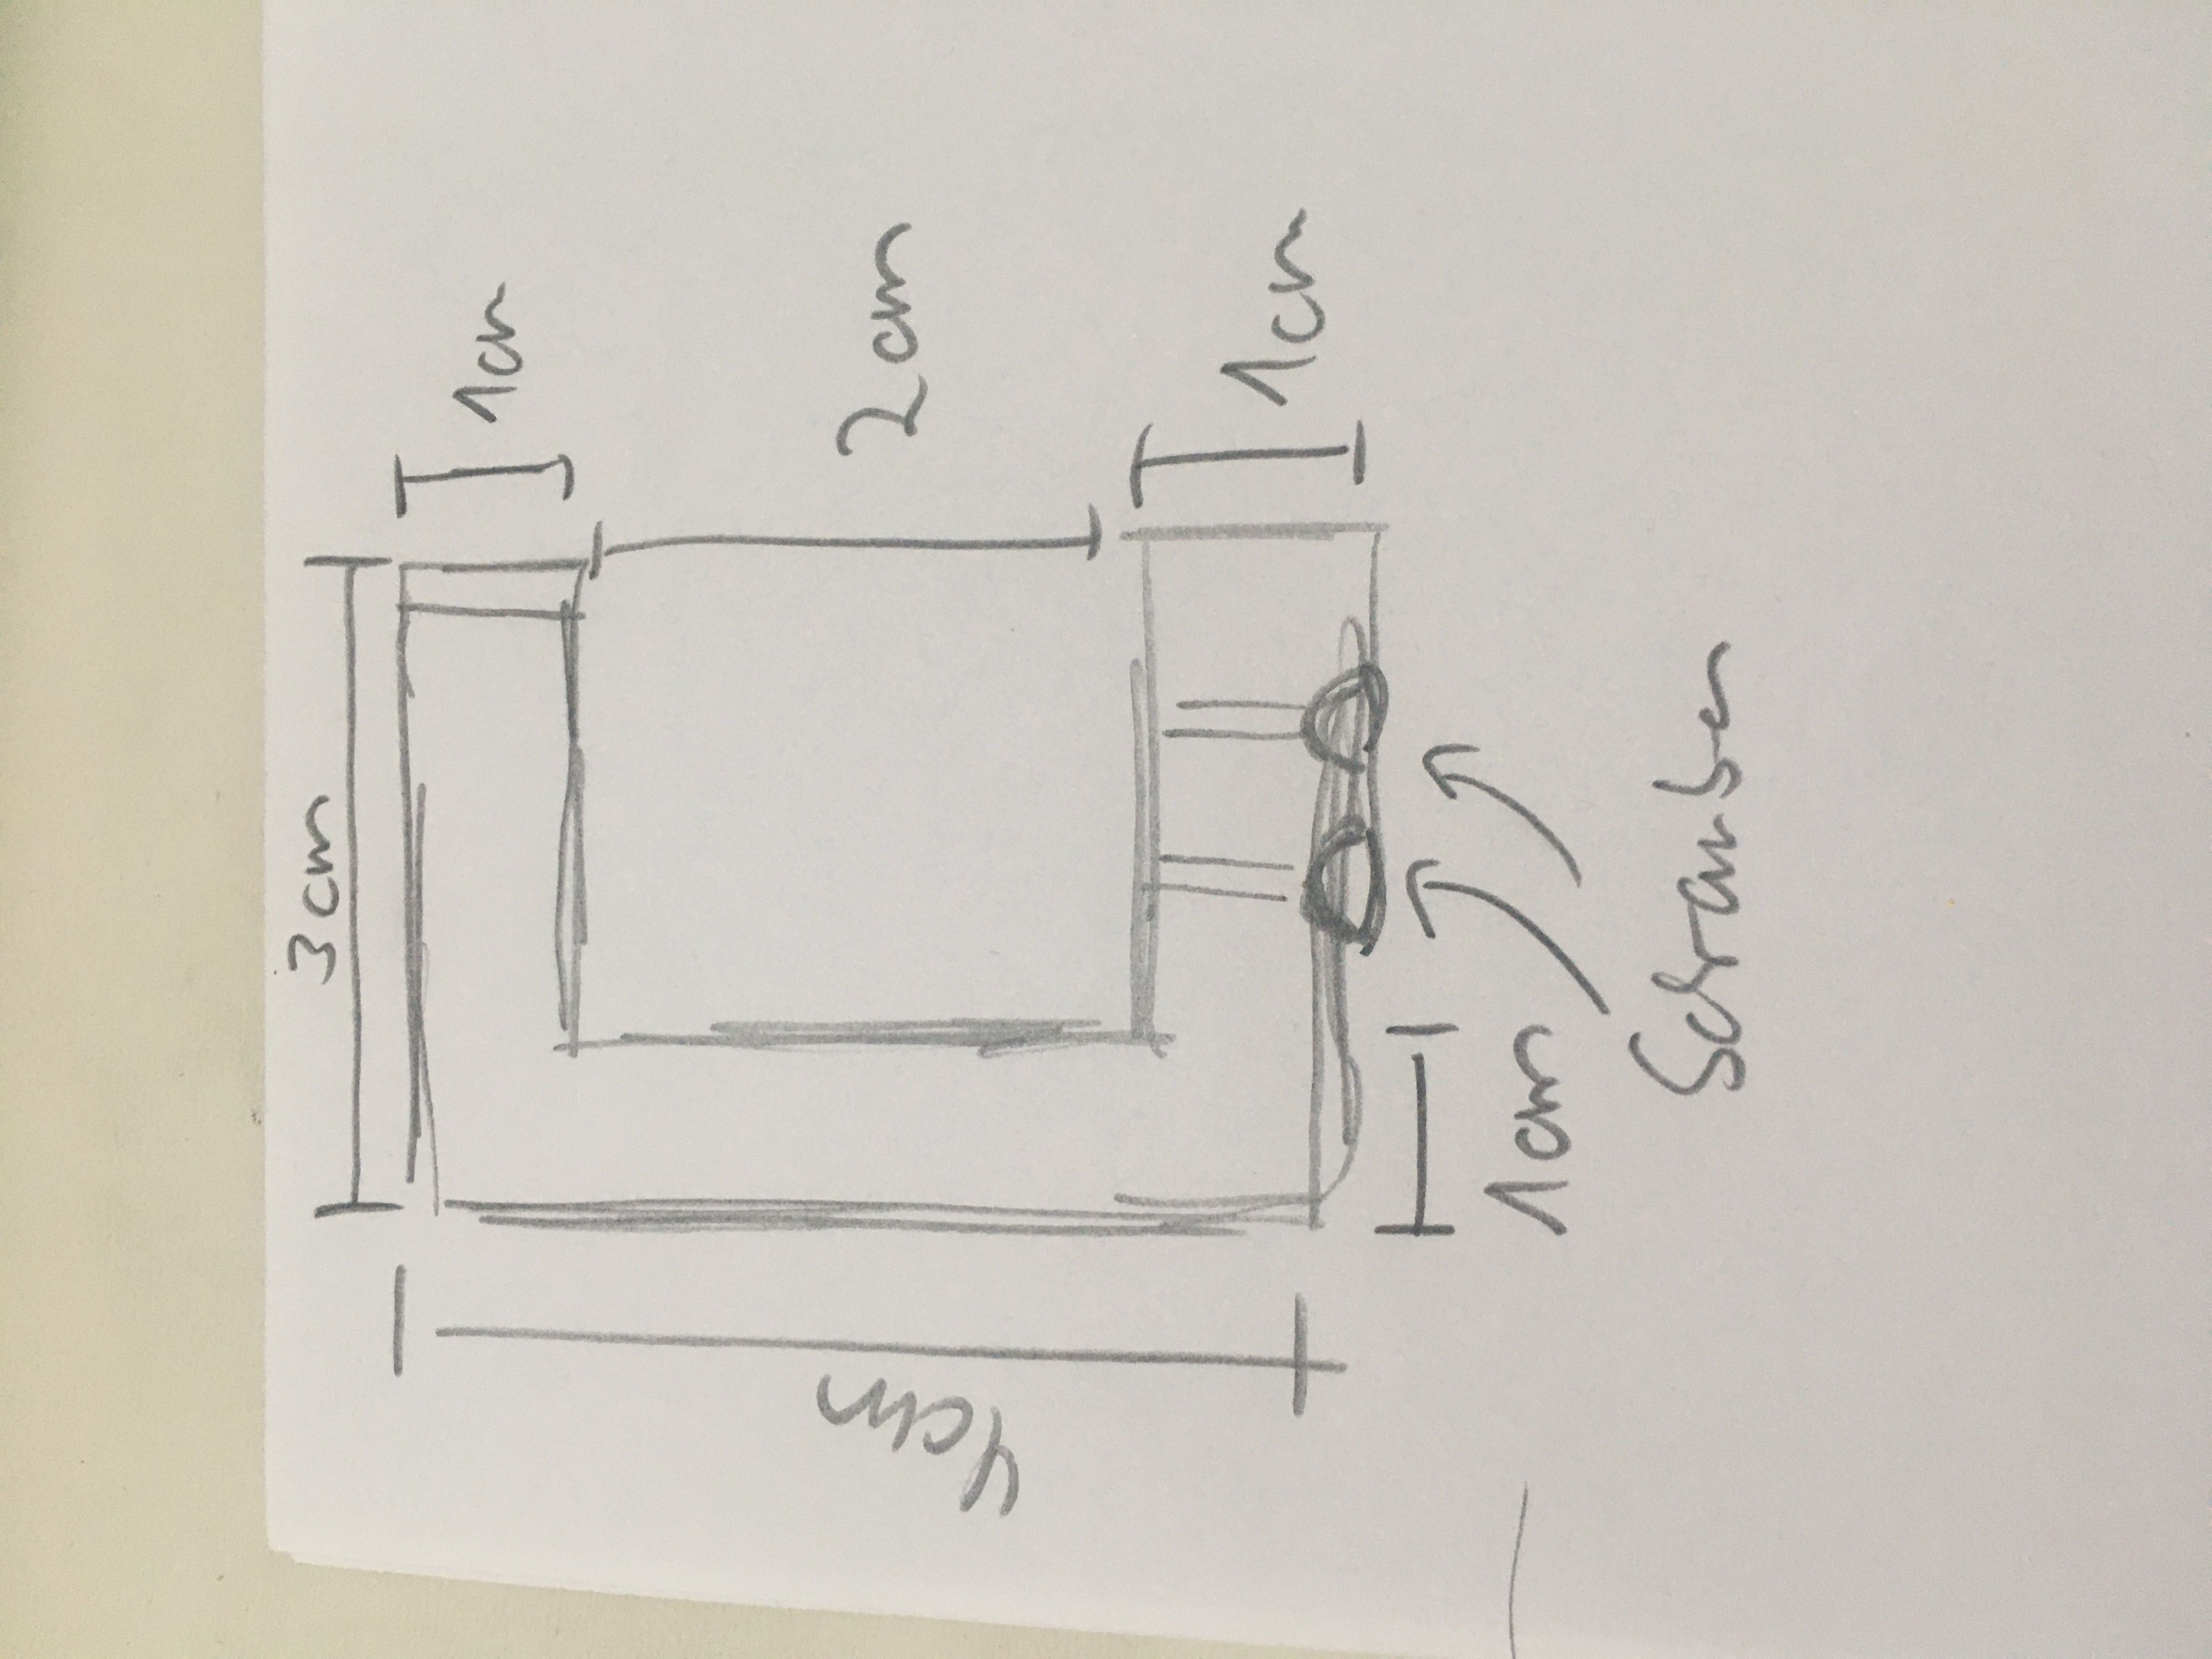 3cm
1cm
4cm
2cm
1cm
1cm
Schrauben